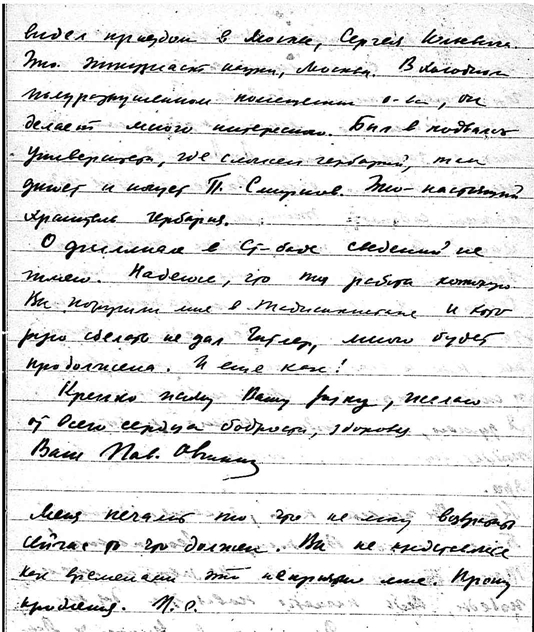 видел приездом в Москве, Сергея Юльевича.
Это энтузиаст науки, Москвы. В холодном
полуразрушенном помещении о-ва, он
делает много интересного. Был в подвалах
Университета, где сложен гербарий, там
дышит и пишет П. Смирнов. Это настоящий
хранитель гербария.
О филиале в Ст-баде сведений не
имею. Надеюсь, что та работа которую
Вы поручили мне в Таджикистане и кото
рую сделать не дал Гитлер, мною будет
продолжена. И еще как!
Крепко жму Вашу руку, желаю
от всего сердца бодрости, здоровья
Ваш Пав. Овчинн
Меня печалит то, что не могу возвратить
сейчас то что должен. Вы не представляете
как временами это неприятно мне. Прошу
прощения. П. О.